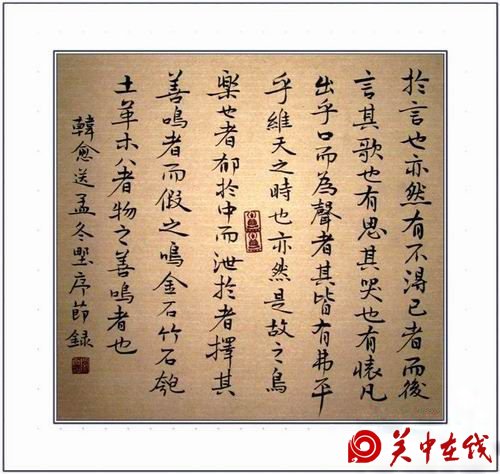 於言也亦然有不得已者而後
言其歌也有思其哭也有懐凡
出乎口而為聲者其皆有弗平
乎維天之時也亦然是故之鳥
樂也者郁於中而泄於者擇其
善鳴者而假之鳴金石竹石匏
土革木八者物之善鳴者也
韓愈送孟冬埜序節録
关中在线